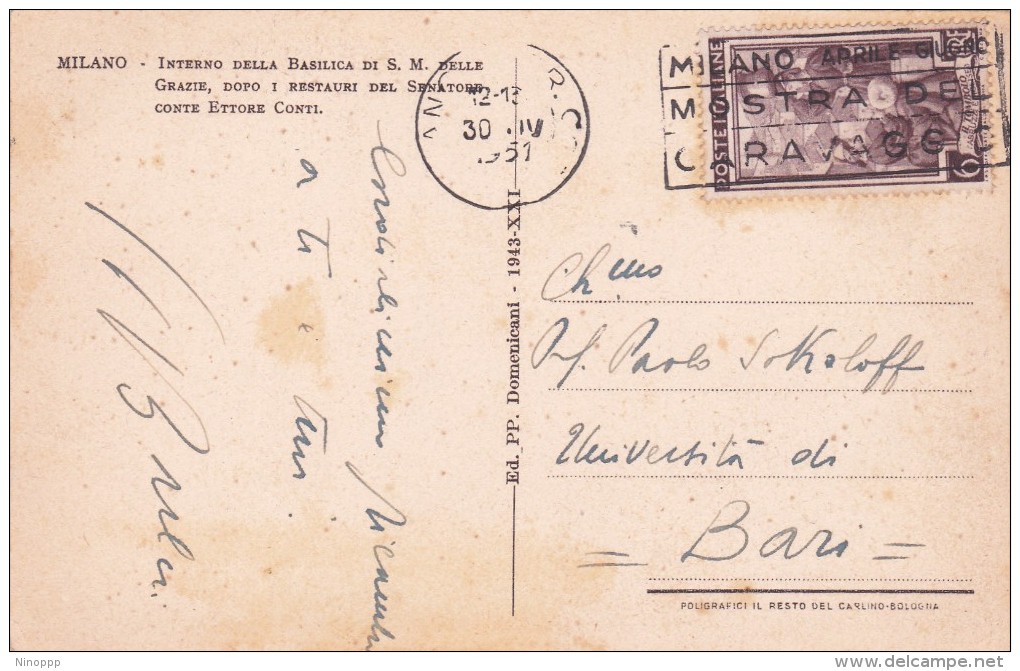 MILANO - INTERNO DELLA BASILICA DI S. M. DELLE
GRAZIE, DOPO I RESTAURI DEL SENATORE
CONTE ETTORE CONTI.
12-13
30 . IV
1951
MILANO APRILE-GIUGNO
MOSTRA DEL
CARAVAGGIO
POSTE ITALIANE
LIRE
6
a te e
tuoi
Ed. PP. Domenicani - 1943-XXI
Ch mo
Prof. Paolo Sokoloff
Università di
= Bari =
POLIGRAFICI IL RESTO DEL CARLINO-BOLOGNA
Ninoppp
delcampe.net